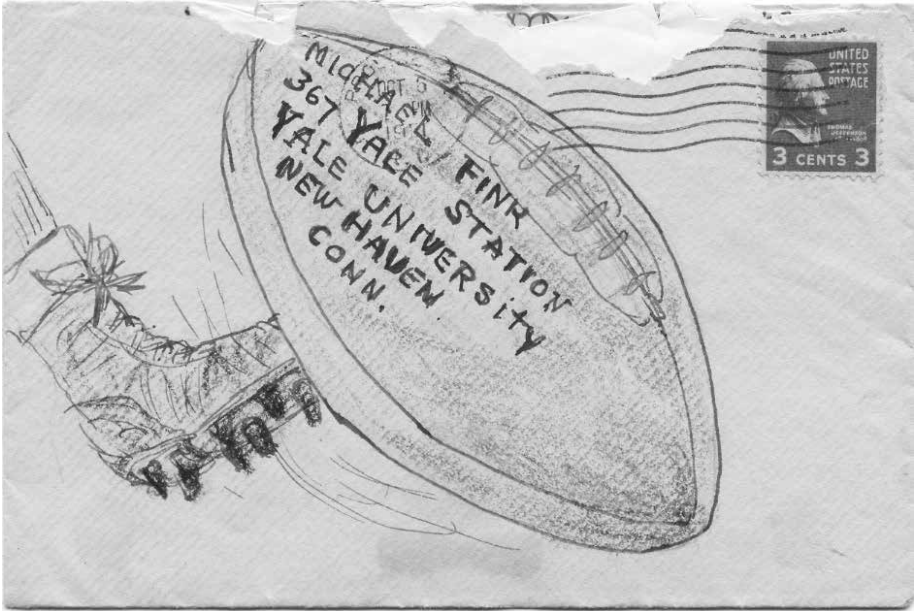 MicHAEL FINK
367 YALE STATION
YALE UNIVERSITY
NEW HAVEN
CONN.
OCT 5
PM
UNITED
STATES
POSTAGE
THOMAS
JEFFERSON
3 CENTS 3